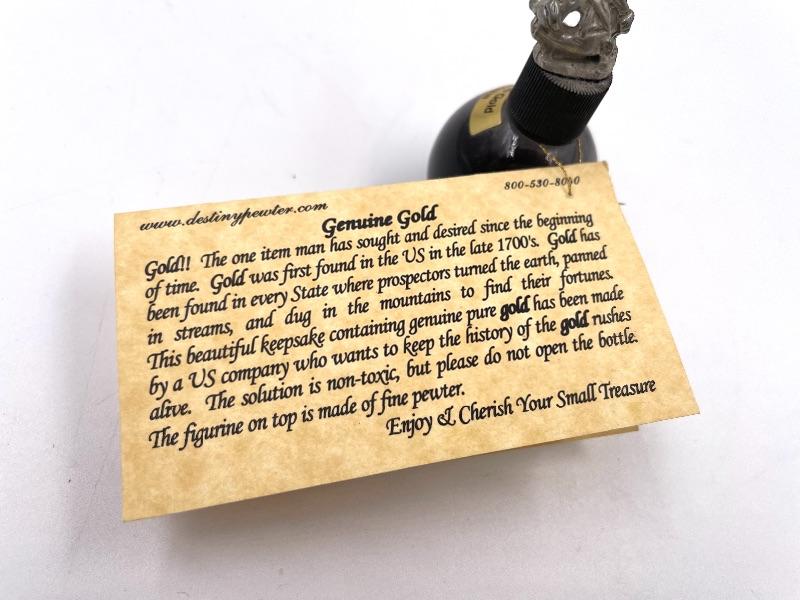 Gold
www.destinypewter.com
800-530-8060
Genuine Gold
Gold!! The one item man has sought and desired since the beginning
of time. Gold was first found in the US in the late 1700's. Gold has
been found in every State where prospectors turned the earth, panned
in streams, and dug in the mountains to find their fortunes.
This beautiful keepsake containing genuine pure gold has been made
by a US company who wants to keep the history of the gold rushes
alive. The solution is non-toxic, but please do not open the bottle.
The figurine on top is made of fine pewter.
Enjoy & Cherish Your Small Treasure